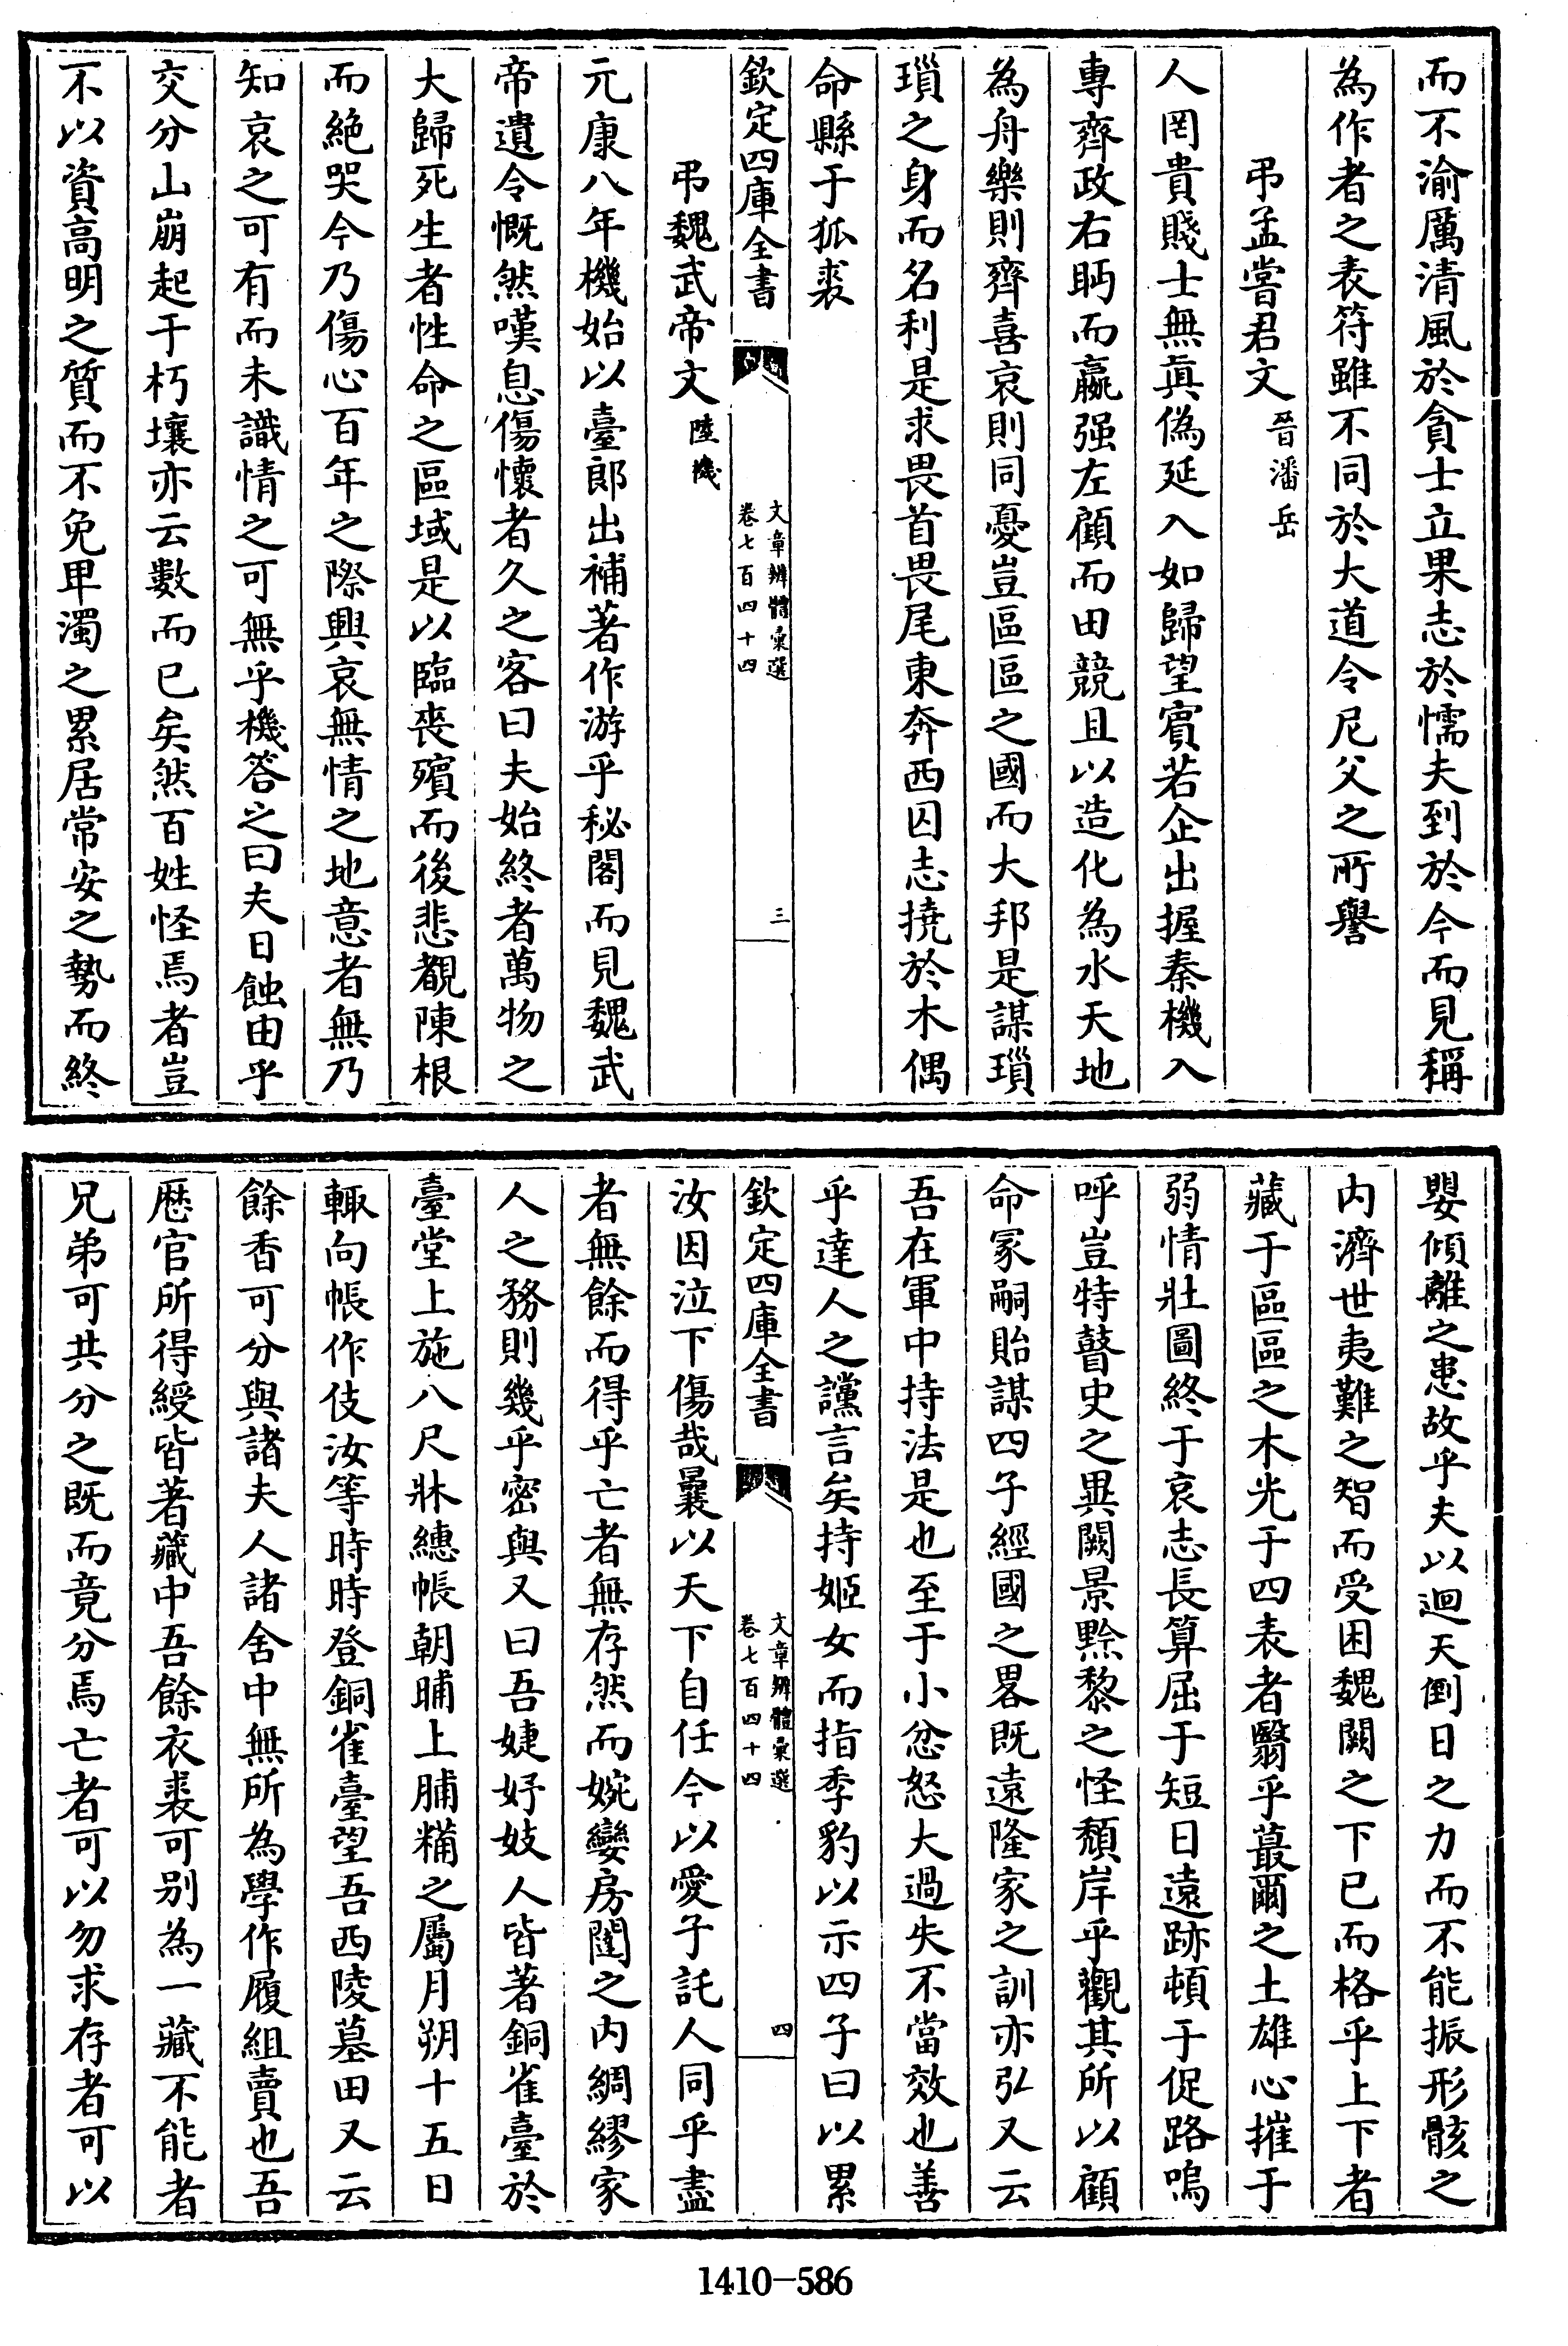 而不渝厲清風於貪士立果志於懦夫到於今而見稱
為作者之表符雖不同於大道令尼父之所譽
弔孟嘗君文晉潘岳
人罔貴賤士無眞偽延入如歸望賓若企出握秦機入
專齊政右眄而嬴强左顧而田競且以造化為水天地
為舟樂則齊喜哀則同憂豈區區之國而大邦是謀瑣
瑣之身而名利是求畏首畏尾東奔西囚志撓於木偶
命縣于狐裘
欽定四庫全書
文章辨體彙選
卷七百四十四
三
弔魏武帝文陸機
元康八年機始以臺郎出補著作游乎秘閣而見魏武
帝遺令慨然嘆息傷懷者久之客曰夫始終者萬物之
大歸死生者性命之區域是以臨喪殯而後悲覩陳根
而絶哭今乃傷心百年之際興哀無情之地意者無乃
知哀之可有而未識情之可無乎機答之曰夫日蝕由乎
交分山崩起于朽壤亦云數而已矣然百姓怪焉者豈
不以資高明之質而不免卑濁之累居常安之勢而終
嬰傾離之患故乎夫以迴天倒日之力而不能振形骸之
内濟世夷難之智而受困魏闕之下已而格乎上下者
藏于區區之木光于四表者翳乎蕞爾之土雄心摧于
弱情壯圖終于哀志長算屈于短日遠跡頓于促路嗚
呼豈特瞽史之異闕景黔黎之怪頽岸乎觀其所以顧
命冢嗣貽謀四子經國之畧既遠隆家之訓亦弘又云
吾在軍中持法是也至于小忿怒大過失不當效也善
乎達人之讜言矣持姬女而指季豹以示四子曰以累
欽定四庫全書
文章辨體彙選
卷七百四十四
四
汝因泣下傷哉曩以天下自任今以愛子託人同乎盡
者無餘而得乎亡者無存然而婉孌房闥之内綢繆家
人之務則幾乎密與又曰吾婕妤妓人皆著銅雀臺於
臺堂上施八尺牀繐帳朝晡上脯糒之屬月朔十五日
輙向帳作伎汝等時時登銅雀臺望吾西陵墓田又云
餘香可分與諸夫人諸舍中無所為學作履組賣也吾
歷官所得綬皆著藏中吾餘衣裘可别為一藏不能者
兄弟可共分之既而竟分焉亡者可以勿求存者可以
1410-586